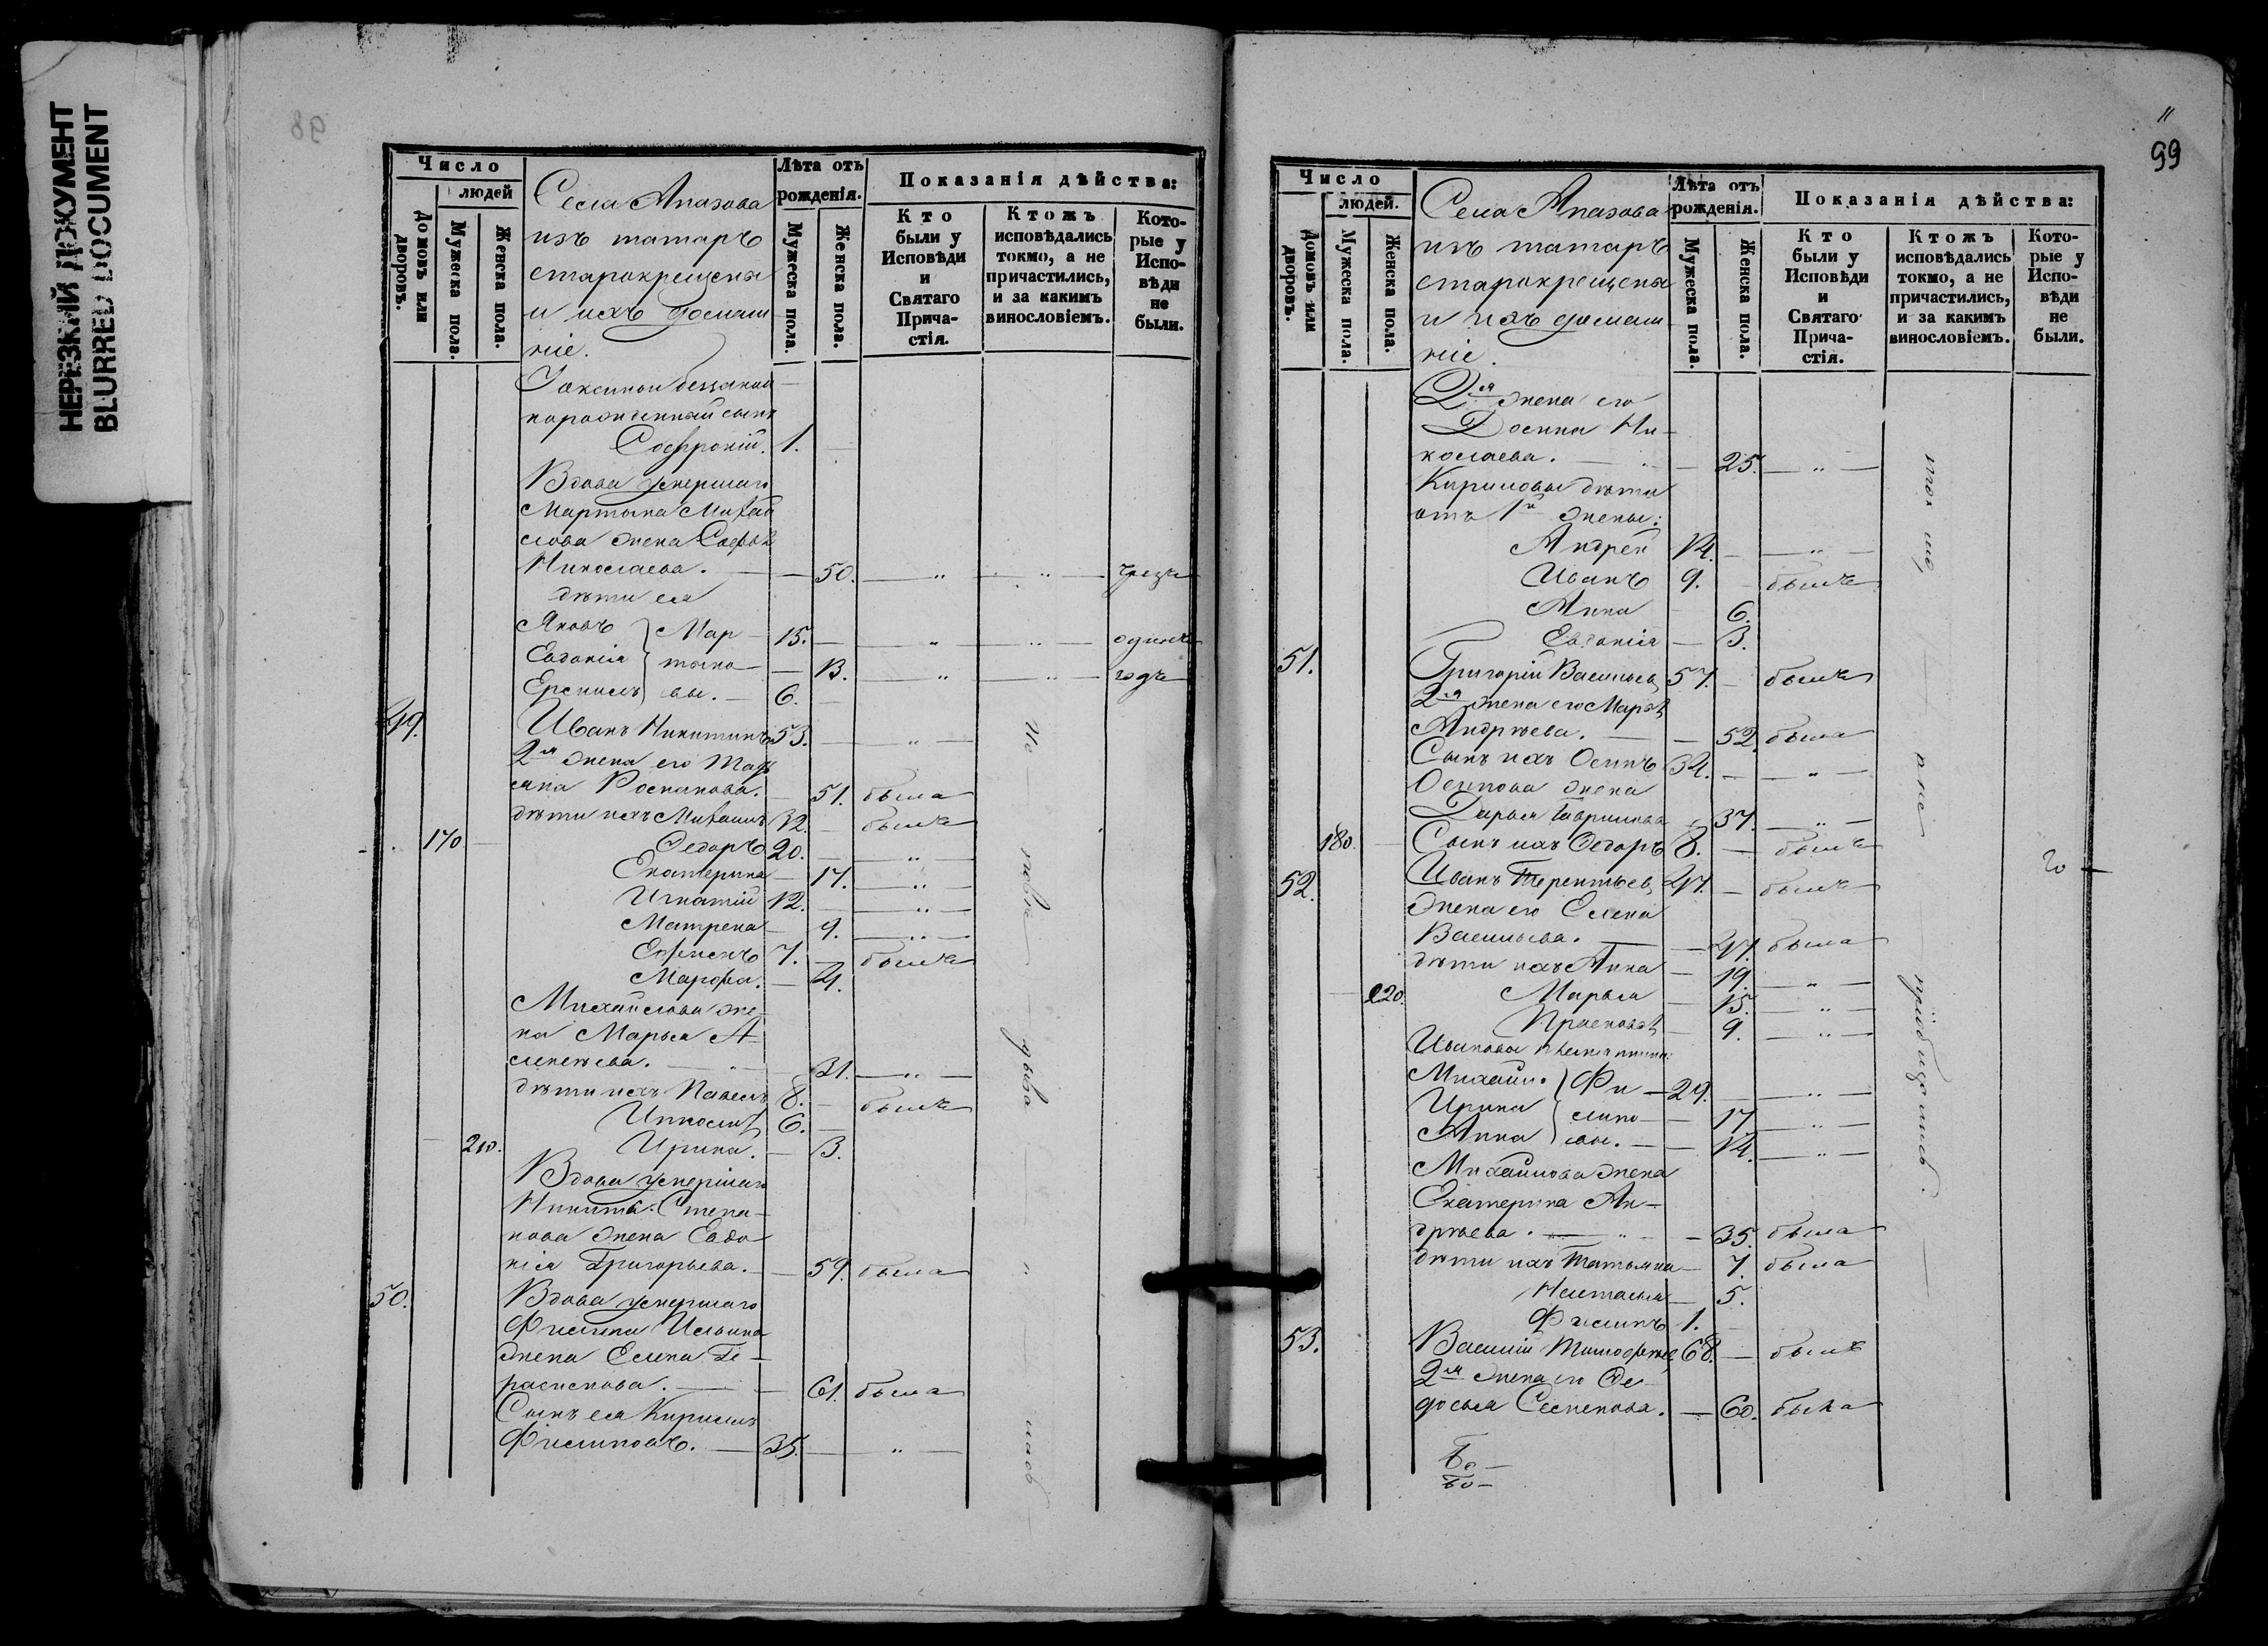 НЕРЕЗКИЙ ДОКУМЕНТ
BLURRED DOCUMENT
98
Число
людей
Домовъ или дворовъ.
Мужеска пола.
Женска пола.
Села Апазова
изъ татаръ
старокрещены
и ихъ домаш
ніе.
Лѣта отъ рожденія.
Мужеска пола.
Женска пола.
Показанія дѣйства:
Кто были у Исповѣди и Святаго Прича-стія.
Ктожъ исповѣдались токмо, а не причастились, и за какимъ винословіемъ.
Кото-рые у Испо-вѣди не были.
рожденный сынъ
Софроній. 1.
Вдова умершаго
Мартына Михай
лова жена Софья
Николаева. — 50. — „ — „ — чрезъ
дѣти ея
Яковъ } Мар 15. — „ — „ — одинъ
Евдокія } тыно — 13. — „ — „ — годъ
Ермилъ } вы. — 6.
49. Иванъ Никитинъ 53. — „ —
2я жена его Тать
яна Романова. — 51. была
дѣти ихъ Михаилъ 32. — былъ
170 Ѳедоръ 20. — „ —
Екатерина — 17. — „ —
Игнатій 12. — „ —
Матрена — 9. — „ —
Ефимъ 7. — былъ
Марфа. — 4.
Михайлова же
на Марья А
лексѣева. — 31. — „ —
дѣти ихъ Павелъ 8. — былъ
6. —
210. Ирина. — 3.
Вдова умершаго
Никиты Степа-
нова жена Евдо
кія Григорьева. — 59. была
50. Вдова умершаго
Филипа Ильина
жена Елена Ге-
расимова. — 61. была
Сынъ ея Кириллъ
Филиповъ. — 35. — „ —
11
99
Число
людей.
Домовъ или дворовъ.
Мужеска пола.
Женска пола.
Села Апазова
изъ татаръ
старокрещены
и ихъ домаш
ніе.
Лѣта отъ рожденія.
Мужеска пола.
Женска пола.
Показанія дѣйства:
Кто были у Исповѣди и Святаго Прича-стія.
Ктожъ исповѣдались токмо, а не причастились, и за какимъ винословіемъ.
Кото-рые у Испо-вѣди не были.
2я жена его
Домна Ни-
колаева. — „ — 25. — „ —
Кириловы дѣти
отъ 1й жены:
Андрей 14. — — „ —
Иванъ 9. былъ
Анна — 6.
Евдокія — 3.
51. Григорій Васильев 57. — былъ
2я жена его Марѳа
Андрѣева. — — 52. была
Сынъ ихъ Осипъ 34. — — „ —
Осипова жена
Дарья Гаврилова 37. — „ —
180. Сынъ ихъ Ѳедоръ 8. — былъ
52. Иванъ Терентьев 47. — былъ
жена его Елена
Васильева. — — 47. была
дѣти ихъ Анна — 19. — „ —
220. Марья — 15. — „ —
9. — „ —
Ивановы племянники:
Михаилъ } Фи — 29. — „ —
Ирина } липо — 17 — „ —
Анна } вы. — 14. — „ —
Михайлова жена
Екатерина Ан-
дрѣева. — „ — 35. была
дѣти ихъ Татьяна — 7. была
Настасья — 5.
Филипъ 1.
53. Василій Тимофеев 68. — былъ
2я жена его Ѳе
досья Семенова. — 60. была
20 —